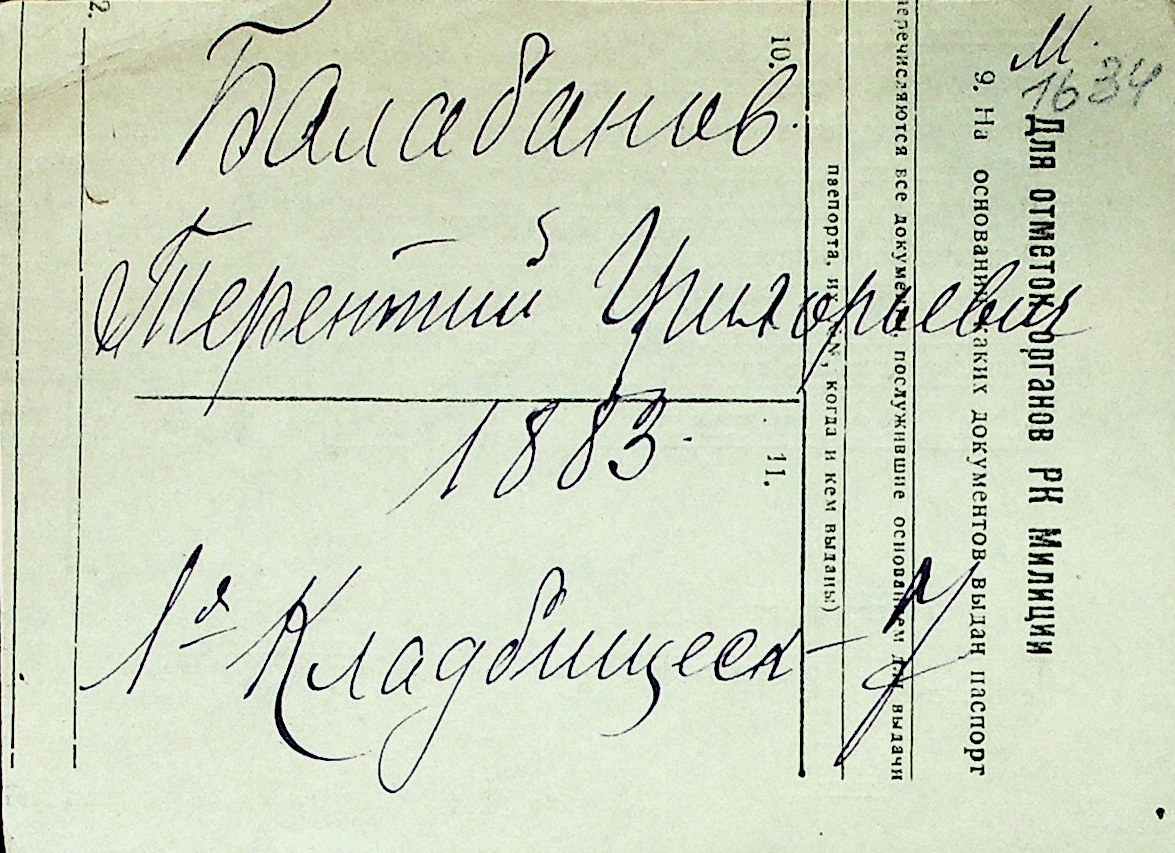 М.
1634
Балабанов.
Терентий Григорьевич
1883.
1я Кладбищеск - 7
Для отметок органов РК Милиции
9. На основании каких документов выдан паспорт
перечисляются все документы, послужившие основанием для выдачи
паспорта, их №№, когда и кем выданы)
10.
11.
2.